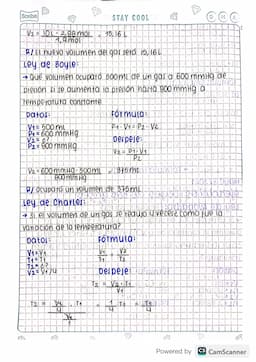 Scribe
STAY COOL
V2 = 10 L · 2,88 mol = 15,16 L
1,9 mol
R/ El nuevo volumen del gas será 15,16 L
Ley de Boyle:
→ Qué volumen ocupará 500ml de un gas a 600 mmHg de
presión si se aumenta la presión hasta 800 mmHg a
temperatura constante.
Datos: Fórmula:
V1 = 500 ml P1 · V1 = P2 · V2
P1 = 600 mmHg
V2 = ? Despeje:
P2 = 800 mmHg V2 = P1 · V1
P2
V2 = 600 mmHg · 500ml = 375 ml
800 mmHg
R/ Ocupará un volumen de 375 ml
Ley de Charles:
→ Si el volumen de un gas se redujo 4 veces como fue la
variación de la temperatura?
Datos: Fórmula:
V1 = V1 V1 = V2
T1 = T1 T1 T2
T2 = ?
V2 = V1/4 Despeje:
T2 = V2 · T1
V1
T2 = V1 · T1 = 1 · T1 = T1
4 4 4
V1
Powered by CS CamScanner